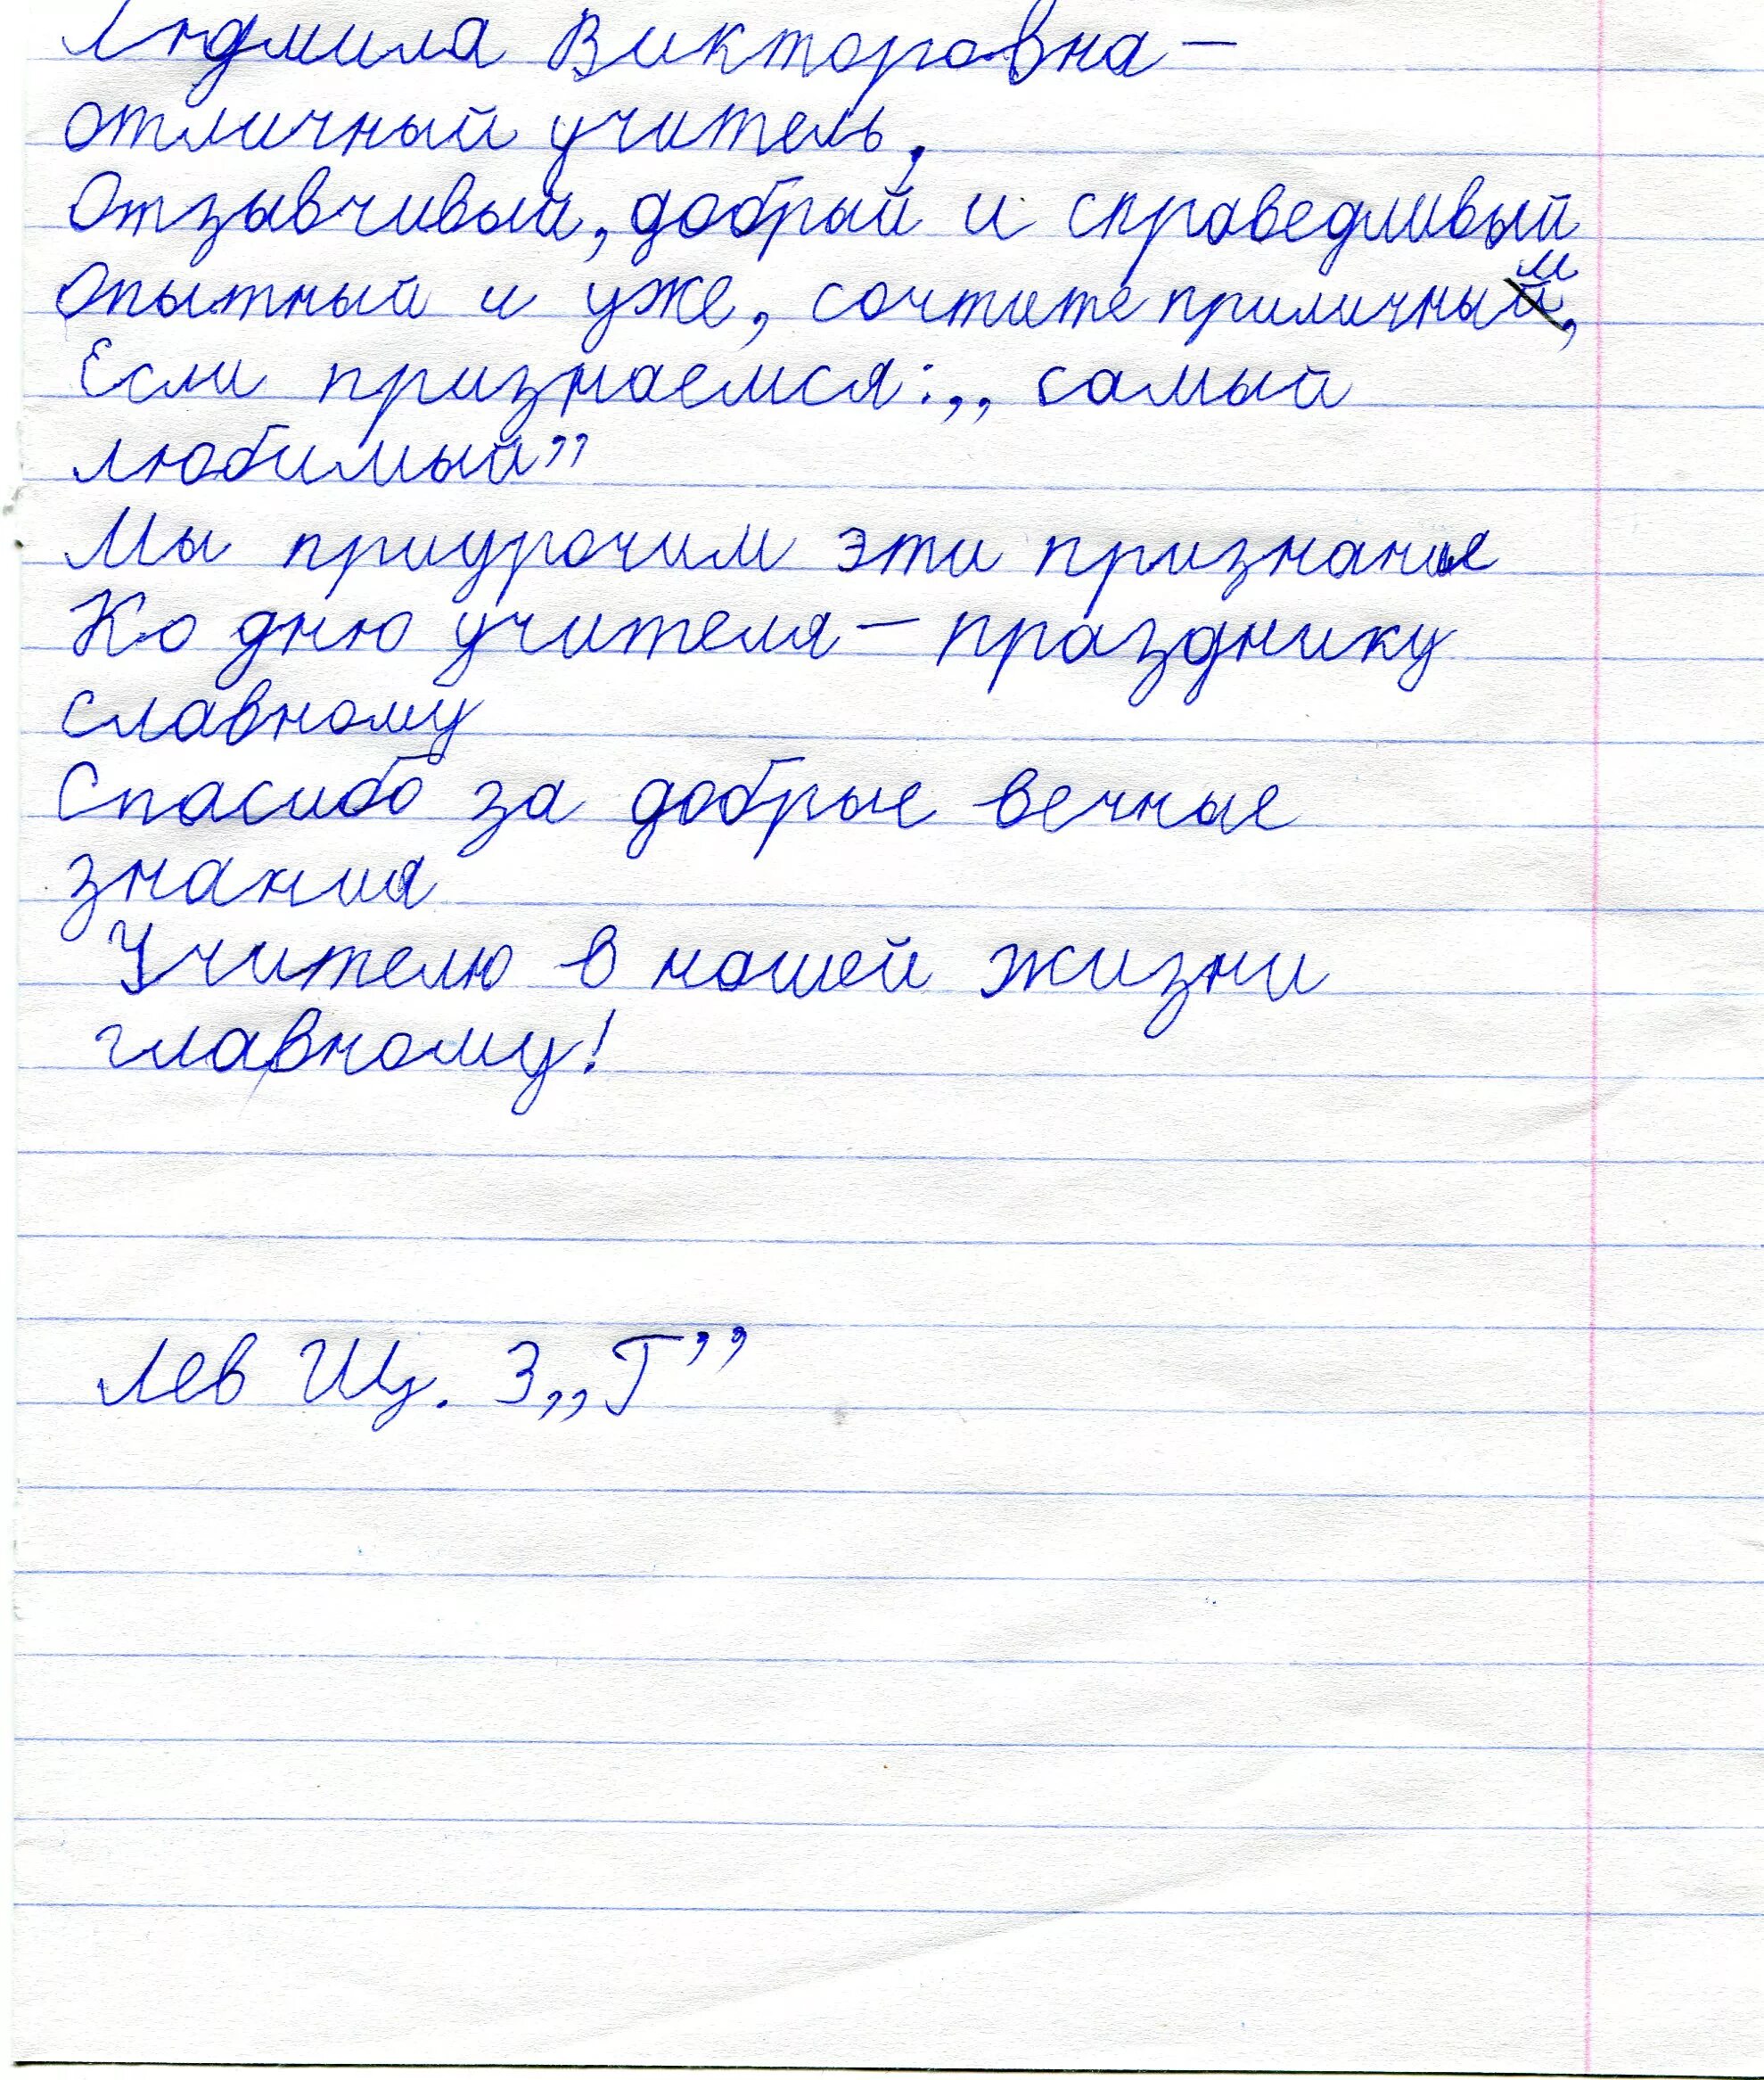 Людмила Викторовна –
отличный учитель,
Отзывчивый, добрый и справедливый
Опытный и уже, сочтите приличным,
Если признаемся: „самый
любимый”
Мы приурочим эти признанья
Ко дню учителя – празднику
славному
Спасибо за добрые вечные
знания
Учителю в нашей жизни
главному!
Лев Щ. 3 „Г”